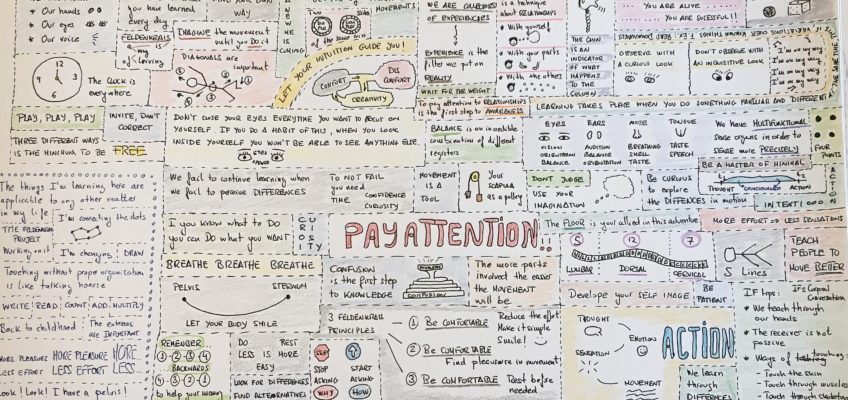 * Our hands
* Our eyes
* Our voice
you have learned
every day
FELDENKRAIS
is a
way
of
learning
WAY
IMAGINE the movement
until you DO it
DIAGONALS are
important
The CLOCK is
everywhere
12
3
6
9
TWO
SIDES
of the same coin
MOVEMENTS
LET YOUR INTUITION GUIDE YOU!
COMFORT
DIS
COMFORT
CREATIVITY
WE ARE
OF EXPERIENCES
EXPERIENCE is the
filter we put on
REALITY
WAIT FOR THE WEIGHT
is a technique
about RELATIONSHIPS
* With yourself
* With your parts
* With the others
To pay attention to RELATIONSHIPS
is the first step to AWARENESS
THE CHIN
IS AN
INDICATOR
OF WHAT
HAPPENS
TO THE
COLUMN
YOU ARE ALIVE
YOU ARE SUCESSFULL!!
OBSERVE WITH
A CURIOUS LOOK
DON'T OBSERVE WITH
AN INQUISITIVE LOOK
I'm on my way
I'm on my way
I'm on my way
I'm on my way
LEARNING TAKES PLACE WHEN YOU DO SOMETHING FAMILIAR AND DIFFERENT
PLAY, PLAY, PLAY
INVITE, DON'T
CORRECT
THREE DIFFERENT WAYS
IS THE MINIMUM TO BE FREE
DON'T CLOSE YOUR EYES EVERYTIME YOU WANT TO FOCUS ON
YOURSELF. IF YOU DO A HABIT OF THIS, WHEN YOU LOOK
INSIDE YOURSELF YOU WON'T BE ABLE TO SEE ANYTHING ELSE.
EYES
OPEN
BALANCE is an incredible
combination of different
registers
EYES
VISION
ORIENTATION
BALANCE
EARS
AUDITION
BALANCE
ORIENTATION
NOSE
BREATHING
SMELL
TASTE
TONGUE
TASTE
SPEECH
We have MULTIFUNCTIONAL
sense organs in order to
sense more PRECISELY
FOUR
POINTS
BE A MASTER OF MINIMAL
THOUGHT
ACTION
The things I'm learning here are
applicable to any other matter
in my life
I'm connecting the dots
THE FELDENKRAIS
PROJECT
Working unit
I'm changing
DRAW
Touching without proper organisation
is like talking hoarse
WRITE READ COUNT ADD MULTIPLY
Back to childhood
The extrems
are IMPORTANT
MORE PLEASURE MORE PLEASURE MORE
LESS EFFORT LESS EFFORT LESS
Look! Look! I have a pelvis!
We fail to continue learning when
we fail to percive DIFFERENCES
TO NOT FAIL
you need
TIME
CONFIDENCE
CURIOSITY
MOVEMENT
IS A
TOOL
Your
SCAPULA
as a pulley
DON'T JUDGE
USE YOUR
IMAGINATION
Be CURIOUS
to explore
the DIFFERENCES
in motion
INTENTION
I you know what to DO
you can DO what you WANT
CURIOSITY
PAY ATTENTION!!
The FLOOR is your allied in this adventure
MORE EFFORT = LESS SENSATIONS
5
12
7
LUMBAR
DORSAL
CERVICAL
5 Lines
TEACH
PEOPLE TO
MOVE BETTER
BREATHE BREATHE BREATHE
PELVIS
STERNUM
LET YOUR BODY SMILE
CONFUSION
is the first step
to KNOWLEDGE
CONFUSION
The more parts
involved the easier
the MOVEMENT
will be
Develope your SELF IMAGE
BE
PATIENT
IF tips:
* We teach through
our hands
* The receiver is not
passive
* Ways of touching:
- Touch the skin
- Touch through muscles
- Touch through skeleton
REMEMBER
1 2 3 4
BACKWARDS
4 3 2 1
to help your
DO REST
LESS IS MORE
EASY
LOOK FOR DIFFERENCES
FIND ALTERNATIVES
STOP
STOP
ASKING
WHY
START
ASKING
HOW
3 FELDENKRAIS
PRINCIPLES
1 Be COMFORTABLE
Reduce the effort
Make it simple
Smile!
2 Be COMFORTABLE
Find pleasure in movement
3 Be COMFORTABLE
Rest before
needed
THOUGHT
EMOTION
SENSATION
MOVEMENT
ACTION
We learn
through
DIFFERENCES